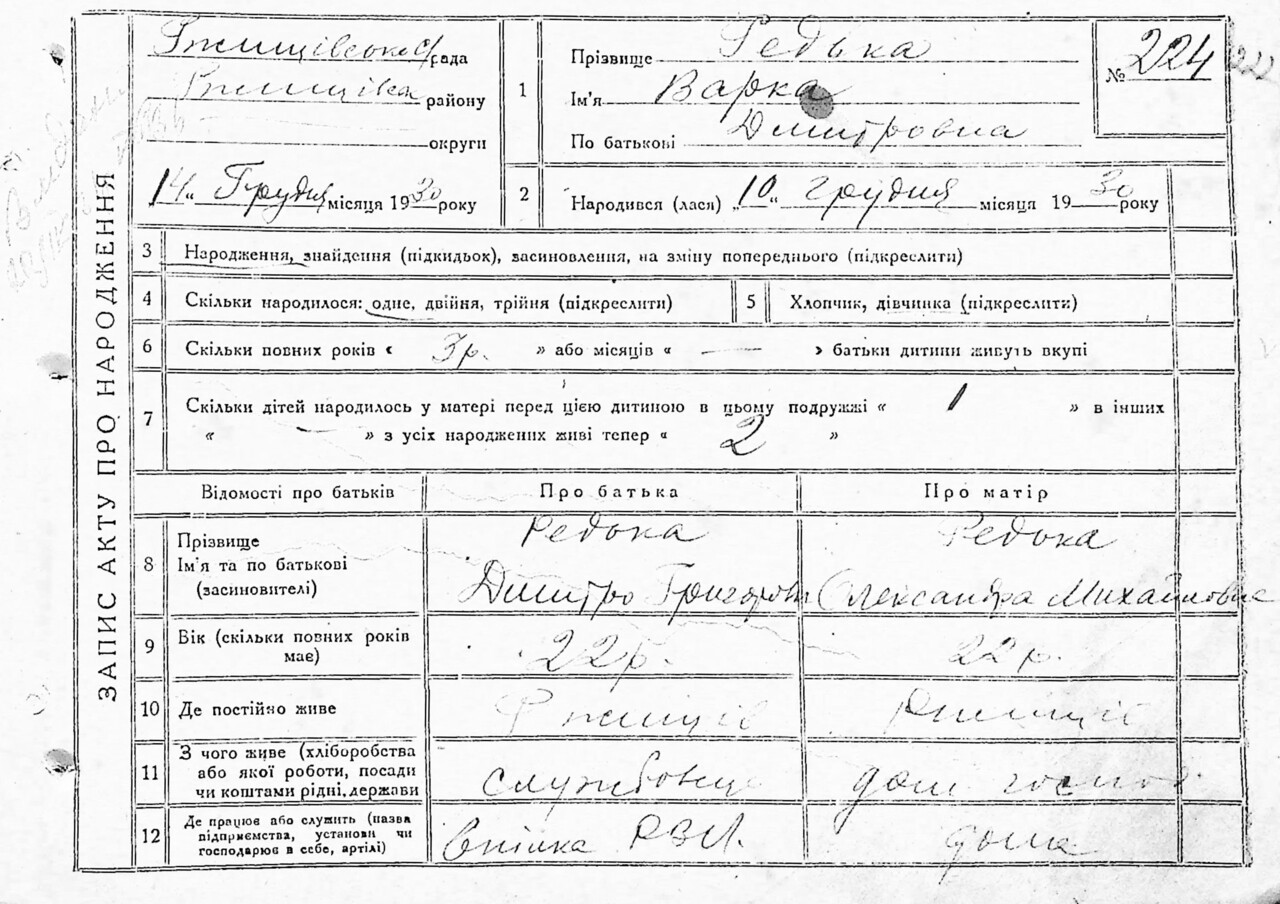 ЗАПИС АКТУ ПРО НАРОДЖЕННЯ
Ржищівська с/рада
Ржищівка району
округи
14 „ Грудня місяця 1930 року
1 Прізвище Редька
Ім'я Варка
По батькові Дмитровна
№ 224
222
2 Народився (лася) „10“ грудня місяця 1930 року
3 Народження, знайдення (підкидьок), засиновлення, на зміну попереднього (підкреслити)
4 Скільки народилося: одне, двійня, трійня (підкреслити)
5 Хлопчик, дівчинка (підкреслити)
6 Скільки повних років « 3 р. » або місяців « — » батьки дитини живуть вкупі
7 Скільки дітей народилось у матері перед цією дитиною в цьому подружжі « 1 » в інших
« — » з усіх народжених живі тепер « 2 »
Відомості про батьків Про батька Про матір
8 Прізвище Редька Редька
Ім'я та по батькові
(засиновителі) Дмитро Григоров Олександра Михайловна
9 Вік (скільки повних років
має) 22 р. 22 р.
10 Де постійно живе Ржищів Ржищів
11 З чого живе (хліборобства
або якої роботи, посади
чи коштами рідні, держави службовець дом госпо
12 Де працює або служить (назва
підприємства, установи чи
господарює в себе, артілі) дома